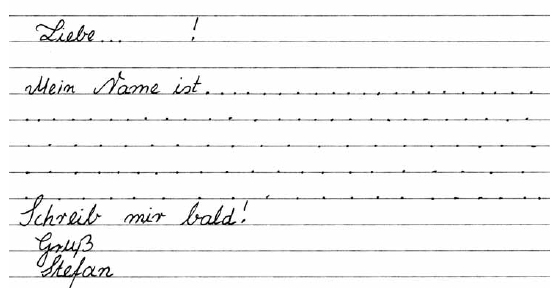 Liebe... !
Mein Name ist.........................
........................................
........................................
........................................
........................................
Schreib mir bald!
Gruß
Stefan